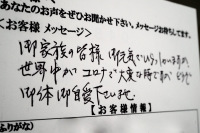 あなたのお声をぜひお聞かせ下さい。メッセージお待ちしてます。
<お客様 メッセージ>
御家族の皆様 御元気でいらっしゃいますか
世界中がコロナで大変な時ですが どうぞ
御体 御自愛下さいませ
【お客様情報】
ふりがな